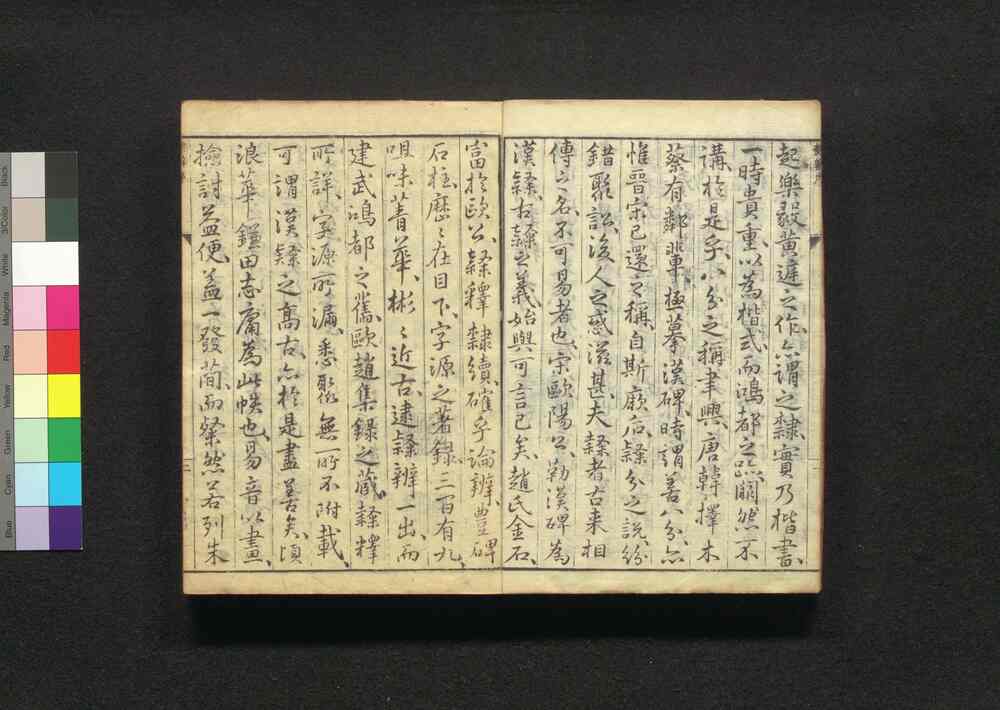 起樂毅黃遲之作亦謂之隸實乃楷書
一時貴重以為楷式而鴻都之跡闃然不
講於是乎八分之稱聿興唐韓擇木
蔡有鄰輩極摹漢碑時謂善八分亦
惟晉宋已還之稱自斯厥后隸分之說紛
錯聚訟後人之惑滋甚夫隸者古来相
傳之名不可易者也宋歐陽公勒漢碑為
漢隸古隸之義始與可言已矣趙氏金石
富於歐公隸釋隸續確乎論辨豊碑
石柱歷々在目下字源之著錄三百有九
咀味菁華彬々近古逮隸辨一出而
建武鴻都之舊歐趙集錄之蔵隸釋
所詳字源所漏悉聚無一所不附載
可謂漢隸之髙古亦於是盡善矣頃
浪華鎌田志庸為此帙也易音以畫
撿討益便蓋一發蕳而粲然若列朱
Black
3/Color
White
Magenta
Red
Yellow
Green
Cyan
Blue